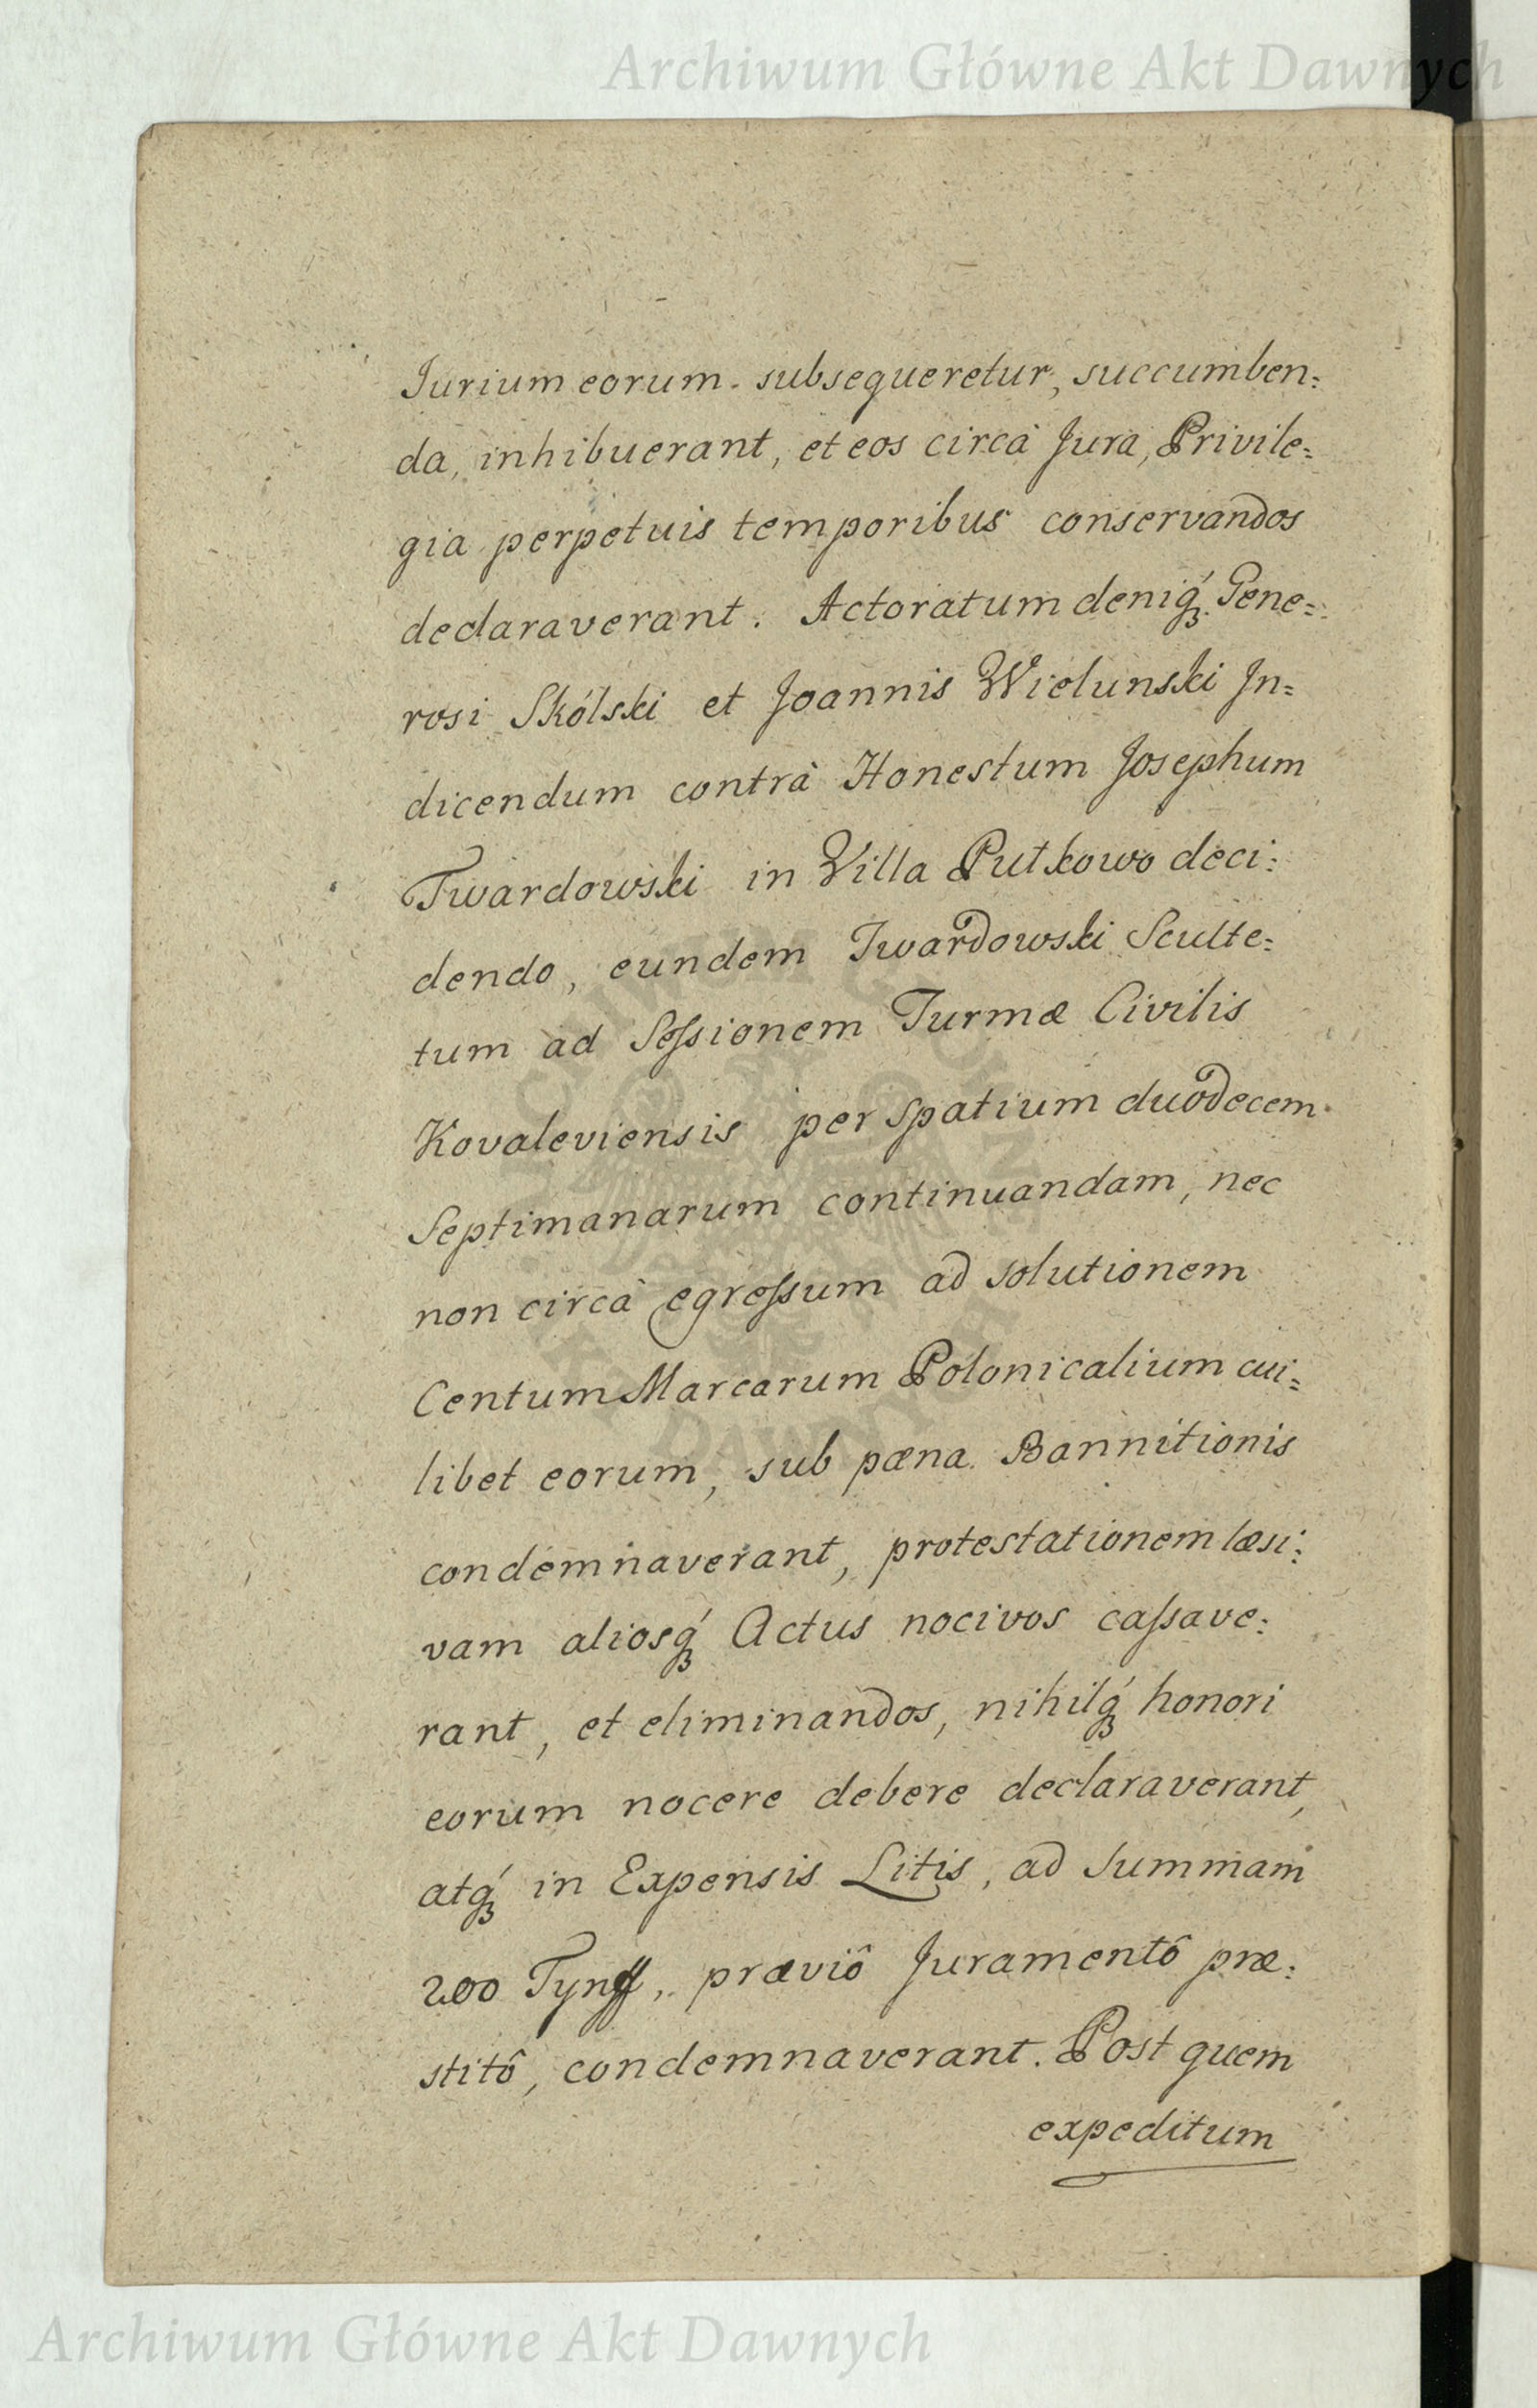 Archiwum Główne Akt Dawnych
Jurium eorum subsequeretur, succumben=
da, inhibuerant, et eos circà Jura, Privile=
gia perpetuis temporibus conservandos
declaraverant. Actoratum deniq́ꝫ Gene=
rosi Skólski et Joannis Wielunski In=
dicendum contrà Honestum Josephum
Twardowski in Villa Putkowo deci=
dendo, eundem Twardowski Sculte=
tum ad Seſsionem Turmæ Civilis
Kovaleviensis per spatium duodecem
Septimanarum continuandam, nec
non circà egreſsum ad solutionem
Centum Marcarum Polonicalium cui=
libet eorum, sub pæna Bannitionis
condemnaverant, protestationem læsi=
vam aliosq́ꝫ Actus nocivos caſsave=
rant, et eliminandos, nihilq́ꝫ honori
eorum nocere debere declaraverant,
atq́ꝫ in Expensis Litis, ad Summam
200 Tynff, præviô Juramentô præ=
stitô, condemnaverant. Post quem
expeditum
Archiwum Główne Akt Dawnych